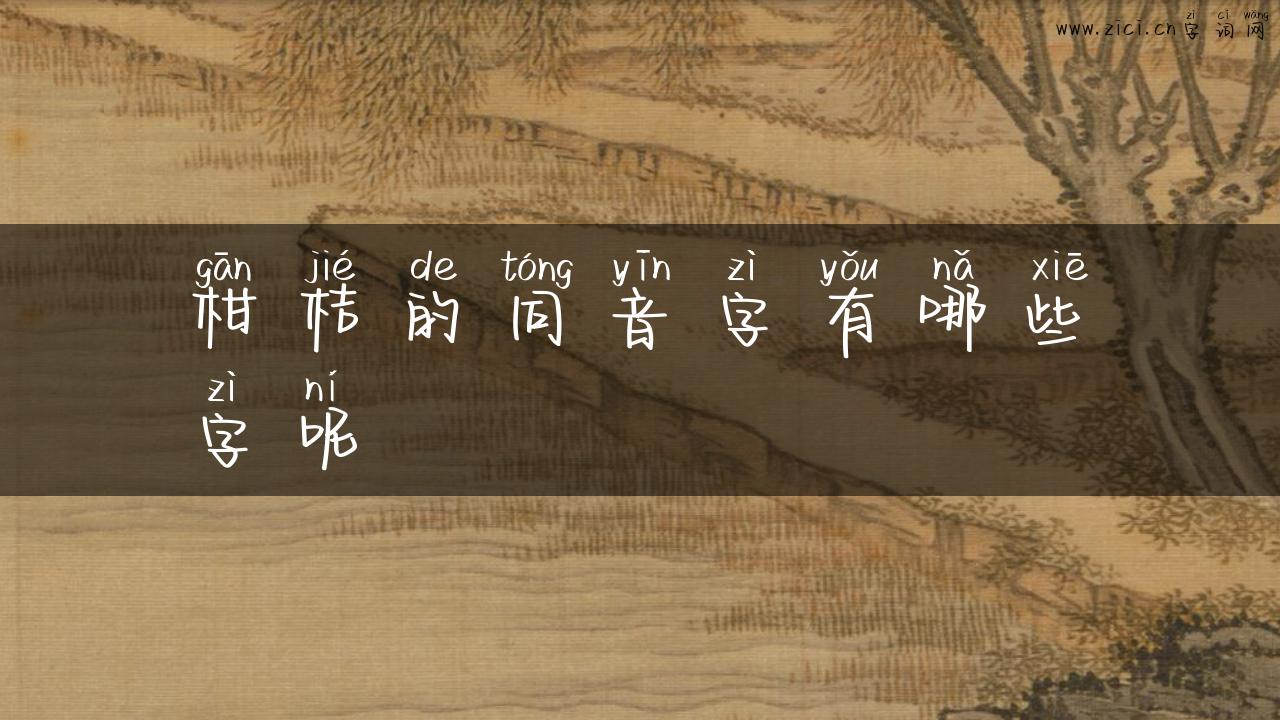 zì cí wǎng
www.zici.cn字词网
gān jié de tóng yīn zì yǒu nǎ xiē
柑桔的同音字有哪些
zì ní
字呢